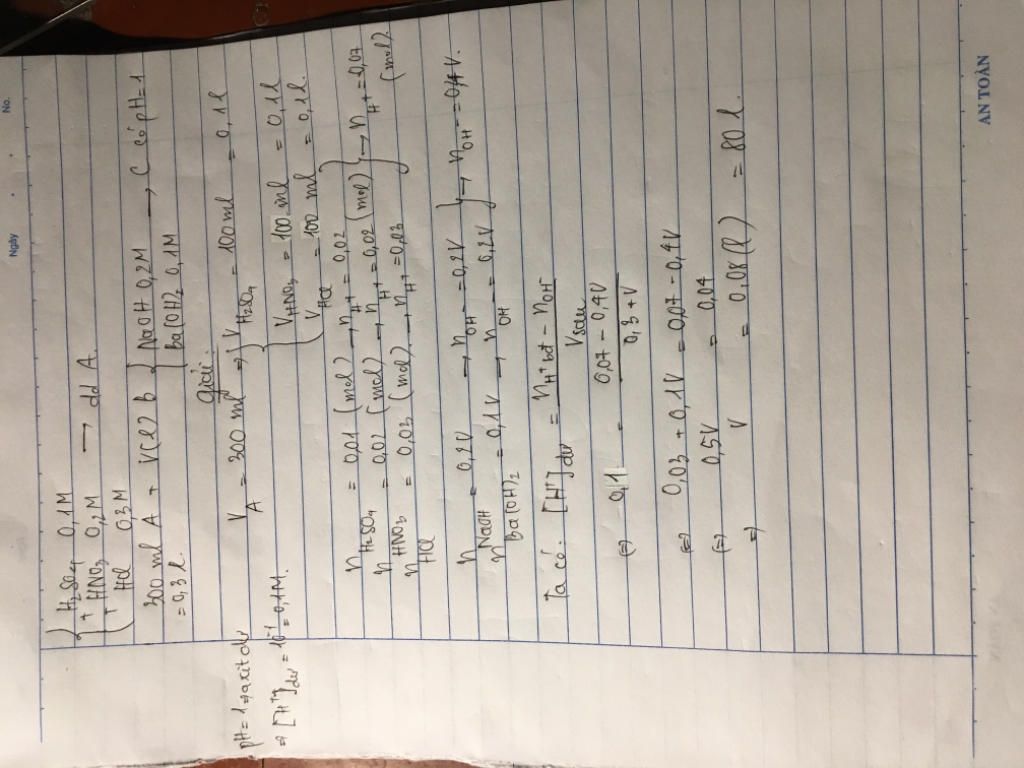 No.
Ngày
{ H₂SO₄ 0,1M
+ HNO₃ 0,2M → dd A.
+ HCl 0,3M
300 ml A + V(l) B { NaOH 0,2M → C có pH=1
= 0,3 l. { Ba(OH)₂ 0,1M
giải:
pH = 1 → axit dư
⇒ [H⁺]dư = 10⁻¹ = 0,1M.
V_A = 300 ml ⇒ { V_H₂SO₄ = 100ml = 0,1l
V_HNO₃ = 100 ml = 0,1l
V_HCl = 100 ml = 0,1l.
n_H₂SO₄ = 0,01 (mol) → n_H⁺ = 0,02
n_HNO₃ = 0,02 (mol) → n_H⁺ = 0,02 (mol) } → n_H⁺ = 0,07 (mol).
n_HCl = 0,03 (mol) → n_H⁺ = 0,03
n_NaOH = 0,2V → n_OH⁻ = 0,2V } → n_OH⁻ = 0,4V.
n_Ba(OH)₂ = 0,1V → n_OH⁻ = 0,2V
Ta có: [H⁺]dư = (n_H⁺bđ - n_OH⁻) / V_sau
(=) 0,1 = (0,07 - 0,4V) / (0,3 + V)
(=) 0,03 + 0,1V = 0,07 - 0,4V
(=) 0,5V = 0,04
⇒ V = 0,08 (l) = 80 l.
AN TOÀN